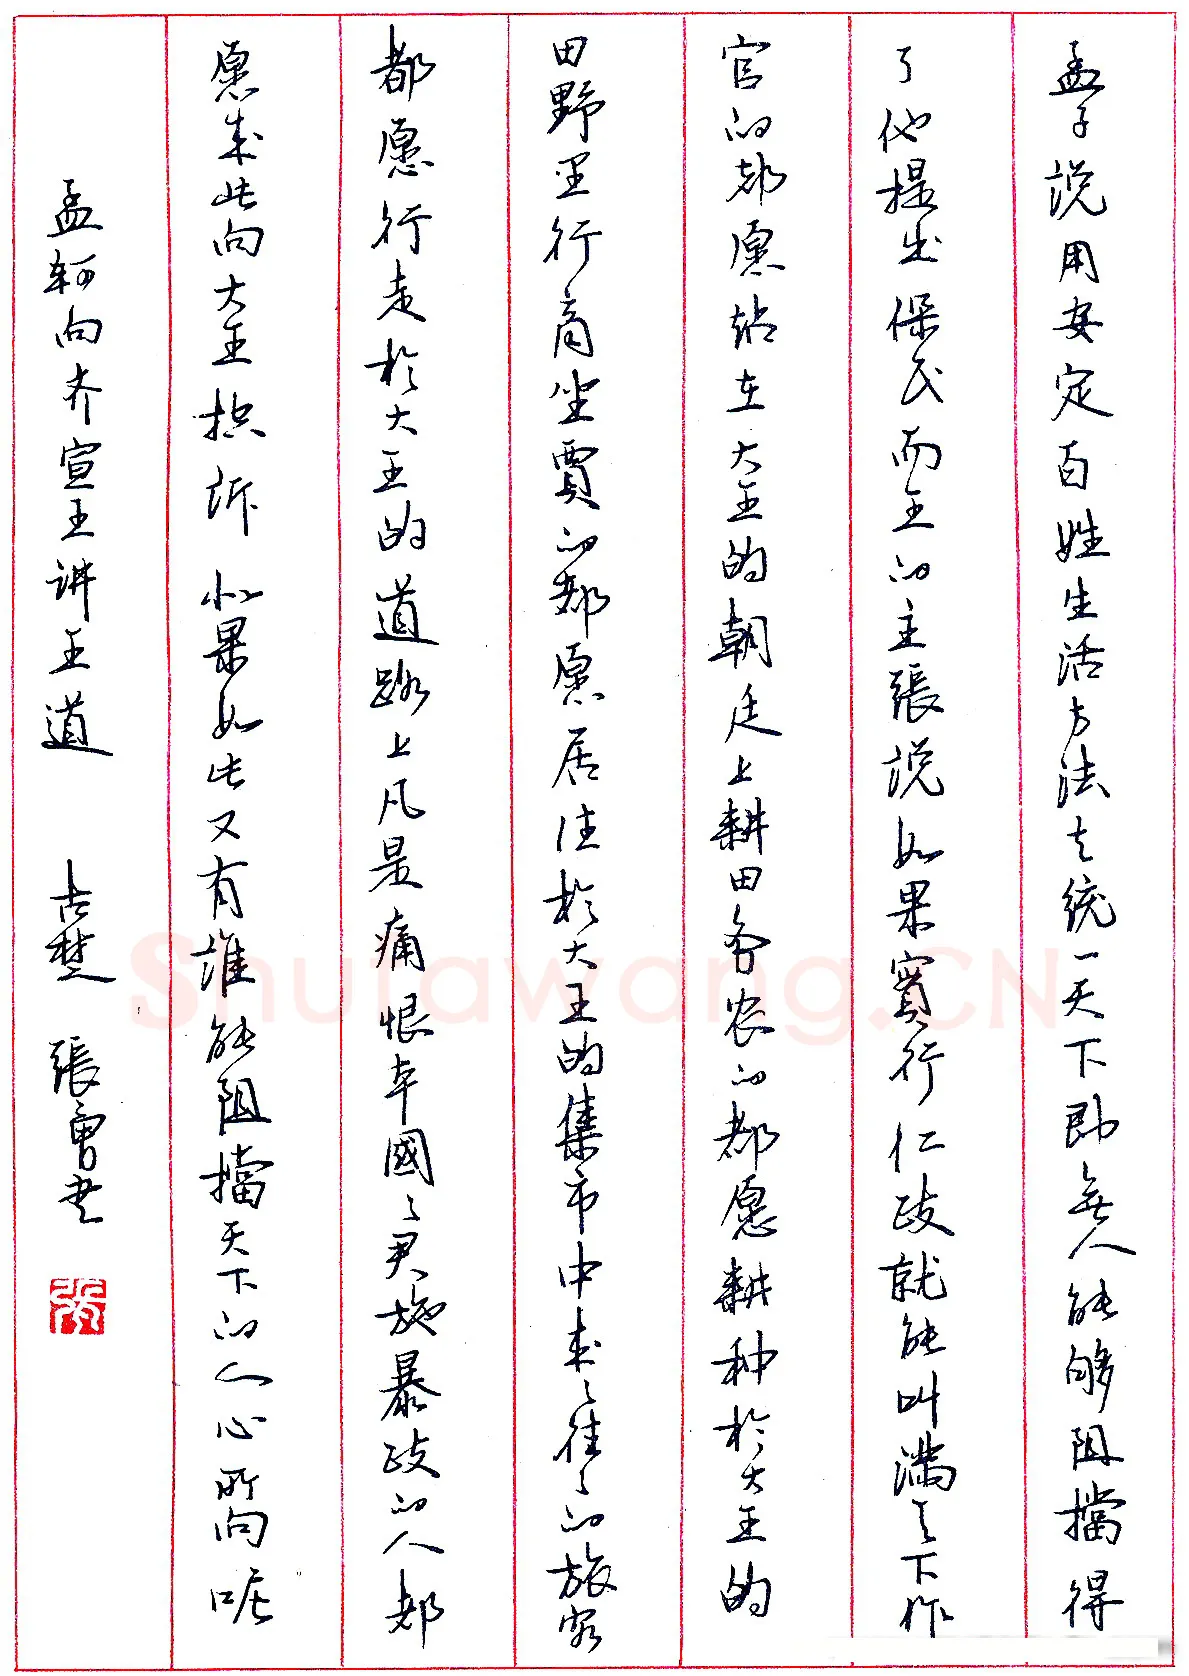 孟子説用安定百姓生活方法去統一天下即無人能够阻擋得
了他提出保民而王的主張説如果實行仁政就能叫满天下作
官的都愿站在大王的朝廷上耕田务农的都愿耕种於大王的
田野里行商坐賈的都愿居住於大王的集市中来々往々的旅客
都愿行走於大王的道路上凡是痛恨本國之君施暴政的人都
愿来此向大王控訴如果如此又有誰能阻擋天下的人心所向呢
孟軻向齐宣王讲王道 古楚 張勇书
Shufawang.CN